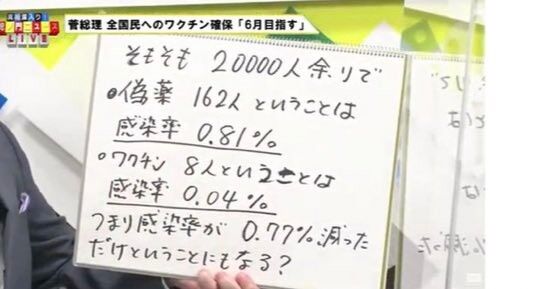 真相深入り!
虎ノ門ニュース
LIVE
菅総理 全国民へのワクチン確保「6月目指す」
そもそも 20000人余りで
●偽薬 162人ということは
感染率 0.81%
○ワクチン 8人ということは
感染率 0.04%
つまり感染率が 0.77% 減った
だけということにもなる?